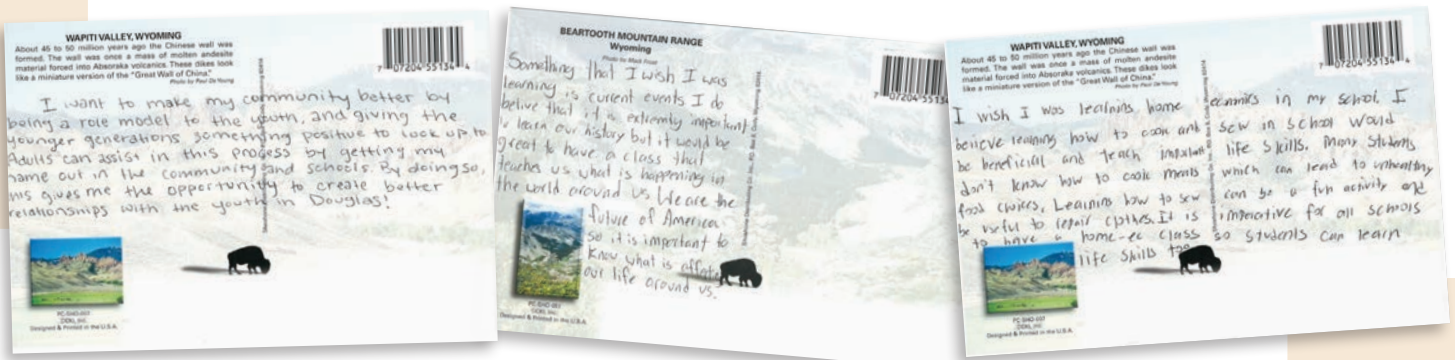 WAPITI VALLEY, WYOMING
About 45 to 50 million years ago the Chinese wall was
formed. The wall was once a mass of molten andesite
material forced into Absoraka volcanics. These dikes look
like a miniature version of the "Great Wall of China."
Photo by Paul De Young
7 07204 55134 4
I want to make my community better by
being a role model to the youth, and giving the
younger generations something positive to look up to.
Adults can assist in this process by getting my
name out in the community and schools. By doing so,
this gives me the opportunity to create better
relationships with the youth in Douglas!
PC-SHO-007
DDKL, Inc.
Designed & Printed in the U.S.A.
BEARTOOTH MOUNTAIN RANGE
Wyoming
Photo by Mark Frost
7 07204 5513
Something that I wish I was
learning is current events I do
belive that it is extremly important
to learn our history but it would be
great to have a class that
teaches us what is happening in
the world around us. We are the
future of America
so it is important to
know what is
our life around us.
Designed & Printed in the U.S.A.
WAPITI VALLEY, WYOMING
About 45 to 50 million years ago the Chinese wall was
formed. The wall was once a mass of molten andesite
material forced into Absoraka volcanics. These dikes look
like a miniature version of the "Great Wall of China."
Photo by Paul De Young
7 07204 55134 4
I wish I was learning home economics in my school. I
believe learning how to cook and sew in school would
be beneficial and teach important life skills. Many students
don't know how to cook meals which can lead to unhealthy
food choices. Learning how to sew can be a fun activity and
be useful to repair clothes. It is imperative for all schools
to have a home-ec class so students can learn
life skills too
PC-SHO-007
DDKL, Inc.
Designed & Printed in the U.S.A.